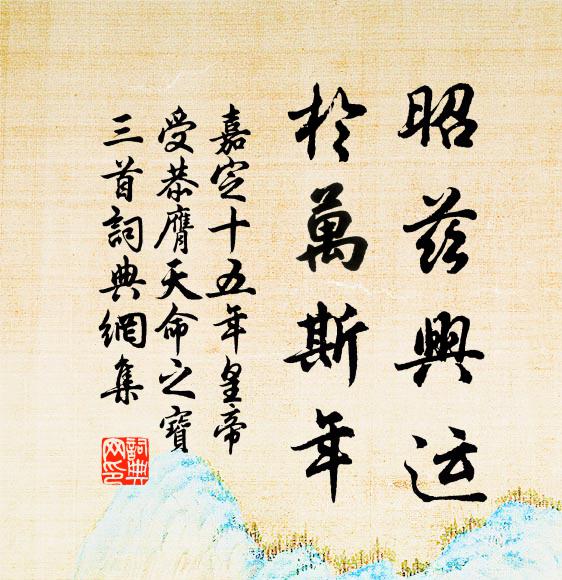 昭茲興运
於萬斯年
嘉定十五年皇帝
受恭膺天命之寶
三首詞典網集
詞典
网印